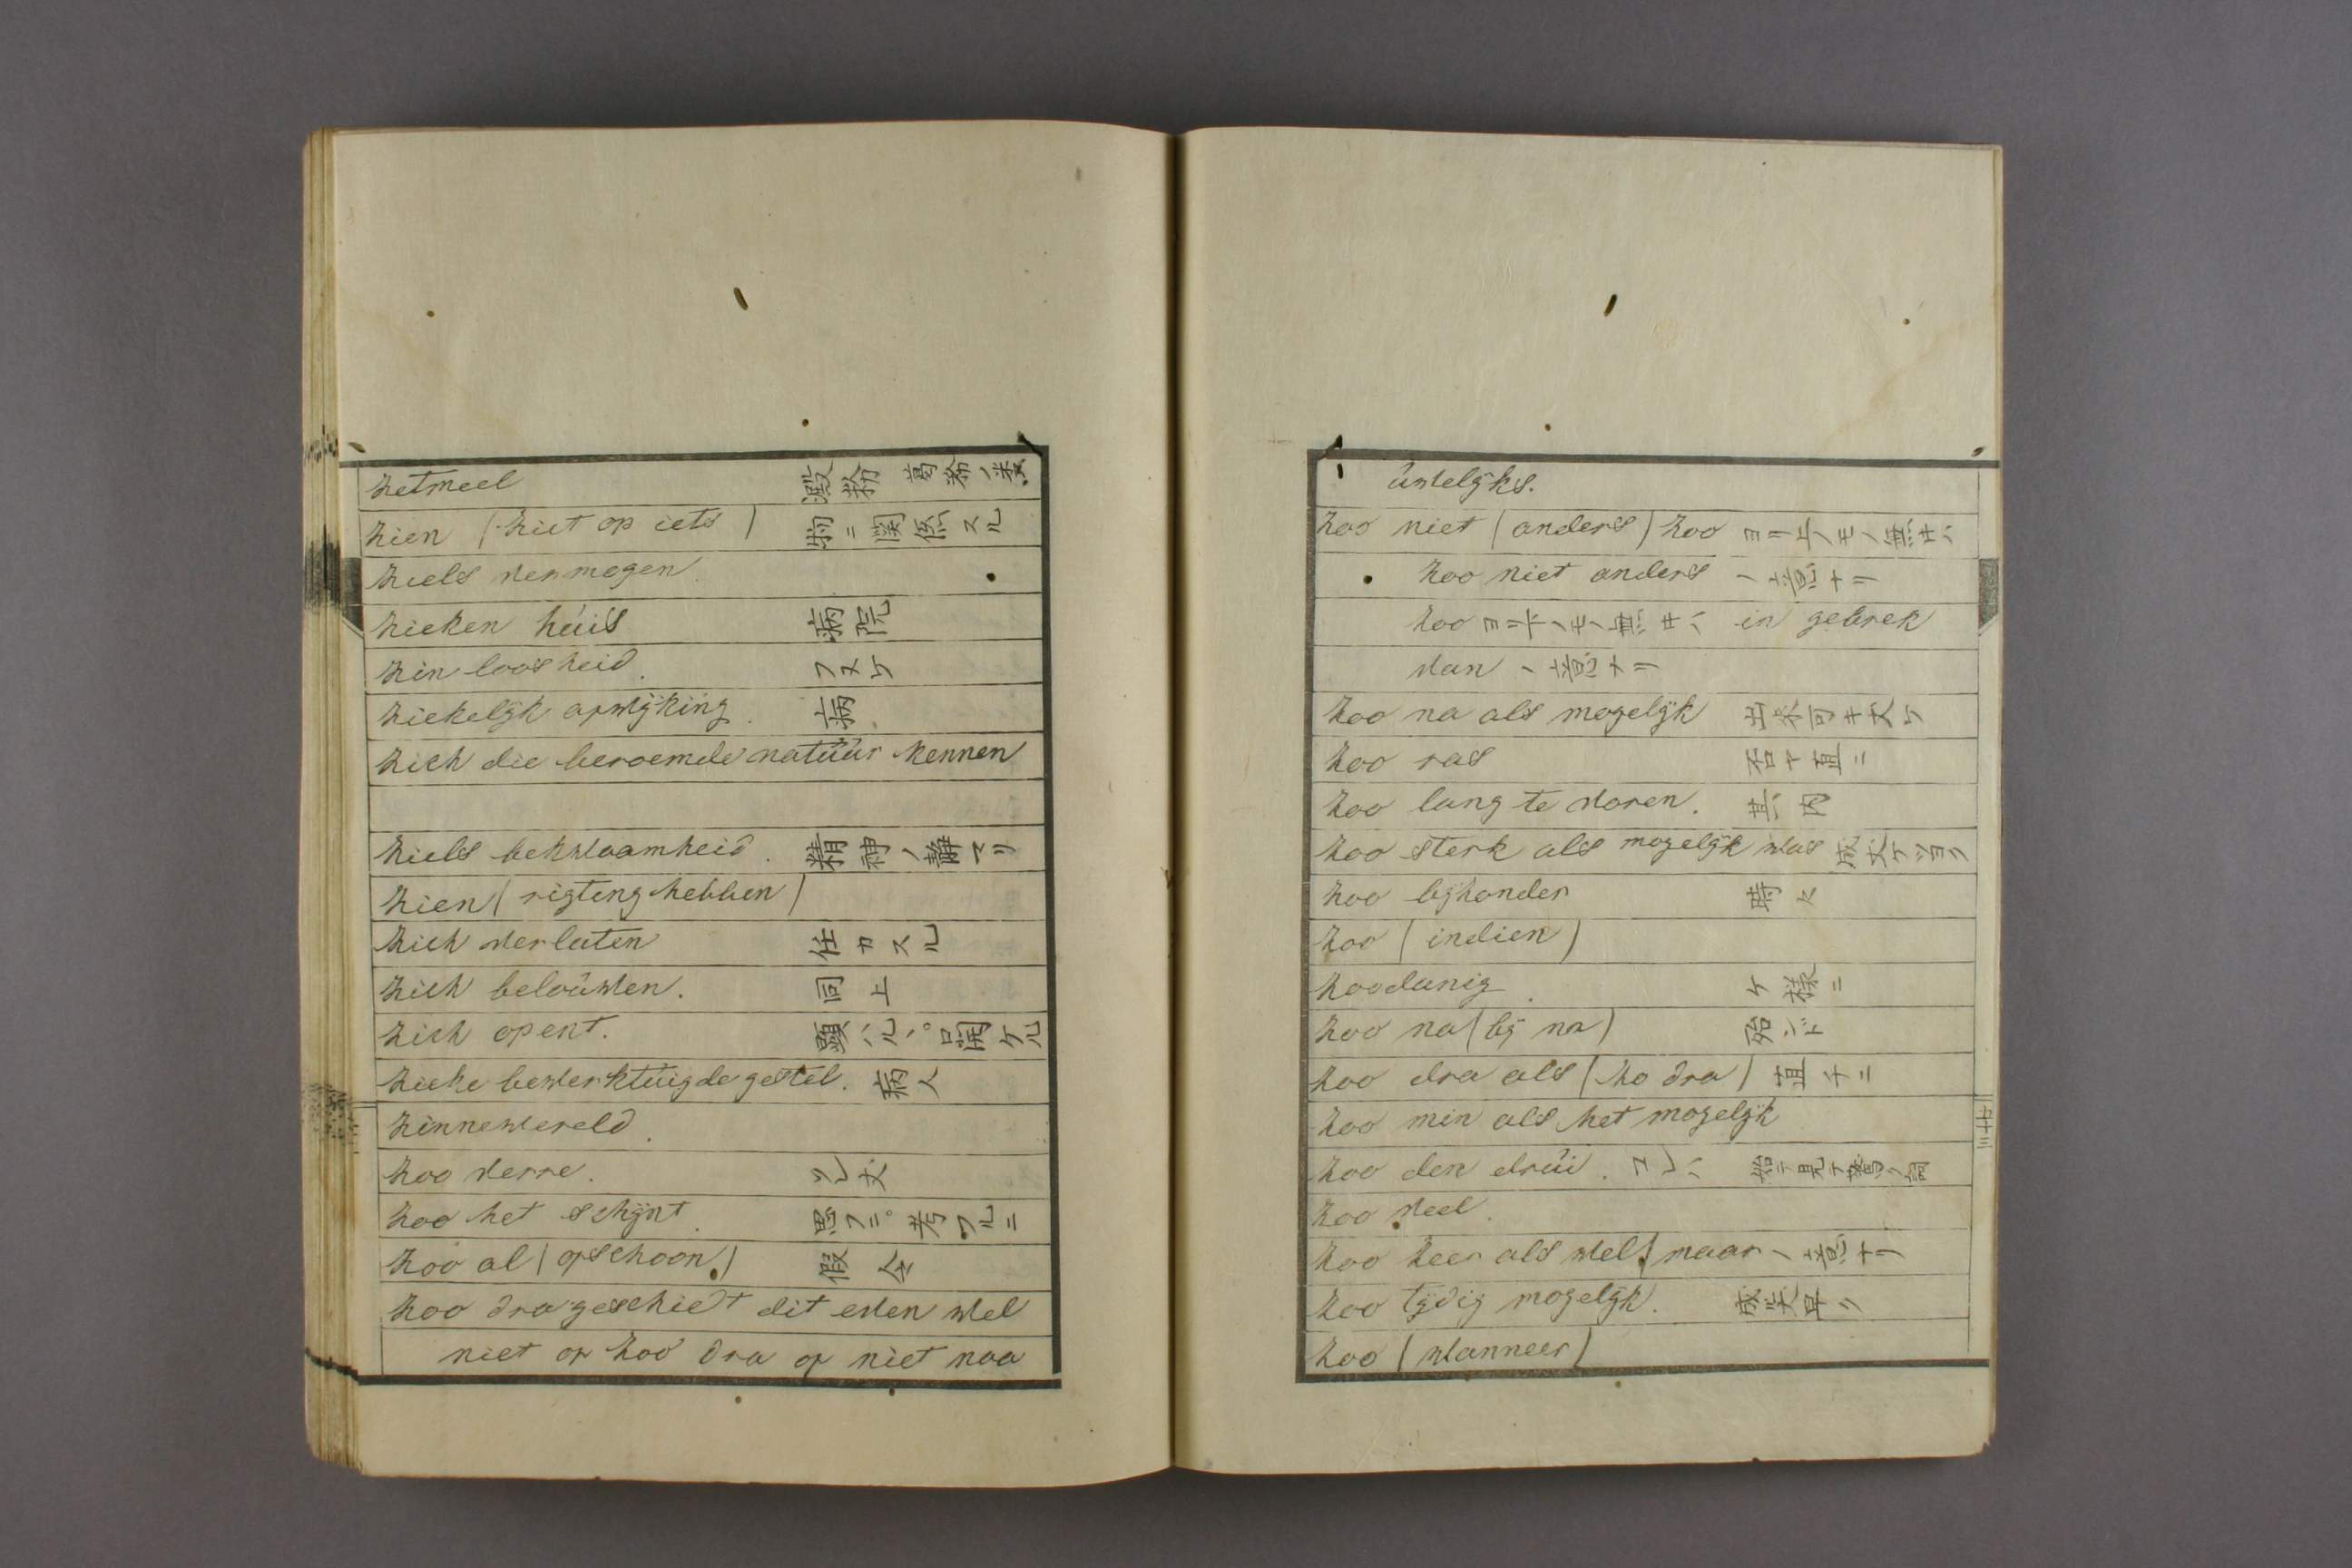 zetmeel 澱粉 葛粉ノ類
zien (ziet op iets) 物ニ関係スル
ziels vermogen.
zieken húis 病院
zin loos heid. フヌケ
ziekelijk afwijking. 病
zich die beroemde natúúr kennen
ziels bekwaamheid. 精神ノ静マリ
zien (rigting hebben)
zich verlaten 任カスル
zich beloúwen. 同上
zich opent. 顕ハル。開ケル
zieke bewerktúigde gestel. 病人
zinnewereld.
zoo verre. 丈
zoo het schijnt. 思フニ。考フルニ
zoo al (ofschoon) 假令
zoo dra geschiedt dit even wel
niet of zoo dra of niet naa
úwelijks.
zoo niet (anders) zoo ヨリ上ノモノ無キハ
zoo niet anders ノ意ナリ
zoo ヨリ下ノモノ無キハ in gebrek
van ノ意ナリ
zoo na als mogelijk 出来可キ丈ケ
zoo ras 否ヤ直ニ
zoo lang te voren. 其内
zoo sterk als mogelijk was 成丈ケツヨク
zoo bijzonder 時々
zoo (indien)
zoodanig. ケ様ニ
zoo na (bij na) 殆ンド
zoo dra als (zo dra) 直チニ
zoo min als het mogelijk
zoo den drúi. コレハ
zoo veel.
zoo zeer als wel, maar ノ意ナリ
zoo tijdig mogelijk. 成丈早ク
zoo (wanneer)
廿三